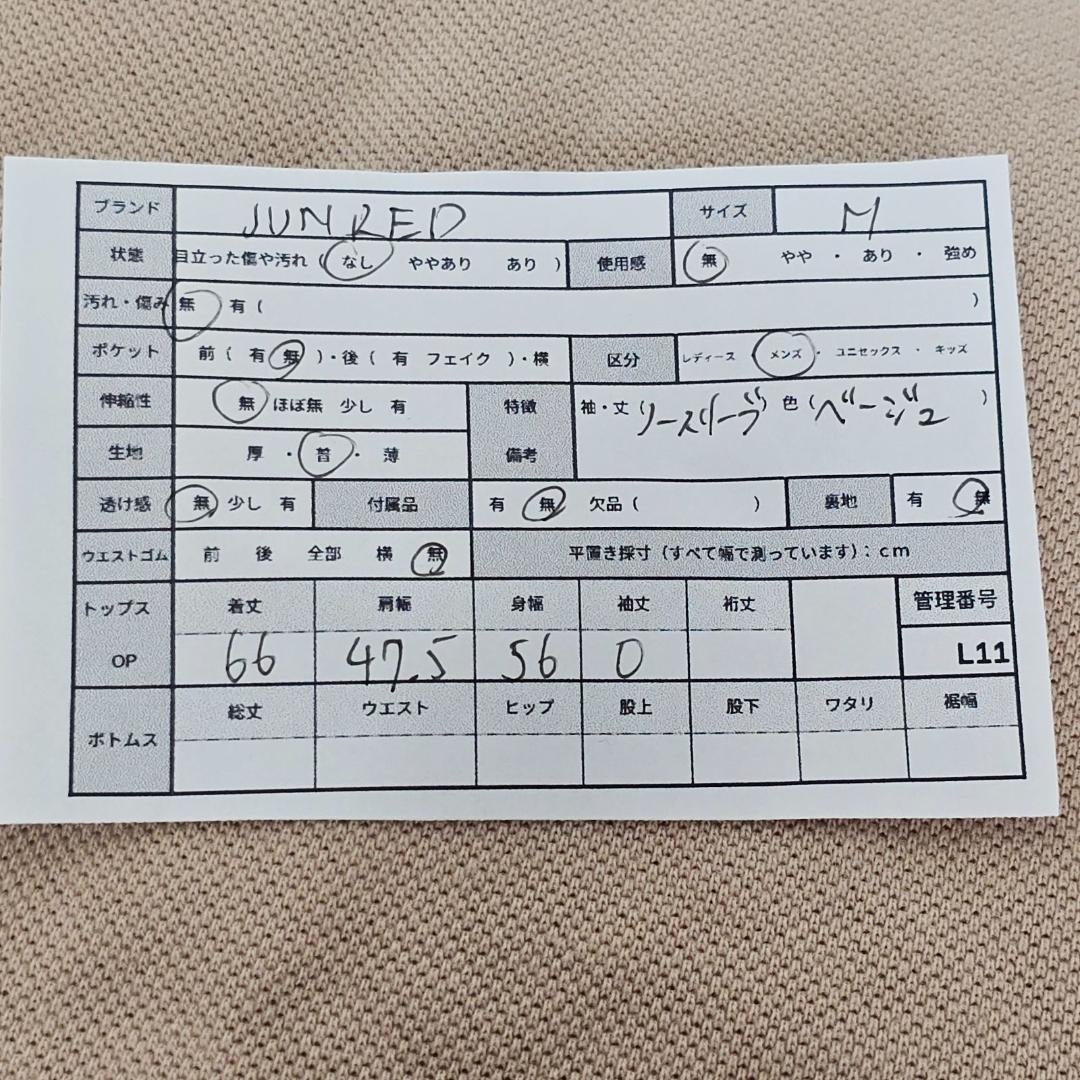 ブランド JUN RED サイズ M
状態 目立った傷や汚れ ( なし ややあり あり ) 使用感 無 やや ・ あり ・ 強め
汚れ・傷み 無 有 ( )
ポケット 前 ( 有 無 )・後 ( 有 フェイク )・横 区分 レディース メンズ ・ ユニセックス ・ キッズ
伸縮性 無 ほぼ無 少し 有 特徴 袖・丈 (ノースリーブ) 色 (ベージュ )
生地 厚 ・ 普 ・ 薄 備考
透け感 無 少し 有 付属品 有 無 欠品 ( ) 裏地 有 無
ウエストゴム 前 後 全部 横 無 平置き採寸 (すべて幅で測っています) : cm
トップス 着丈 肩幅 身幅 袖丈 裄丈 管理番号
OP 66 47.5 56 0 L11
総丈 ウエスト ヒップ 股上 股下 ワタリ 裾幅
ボトムス